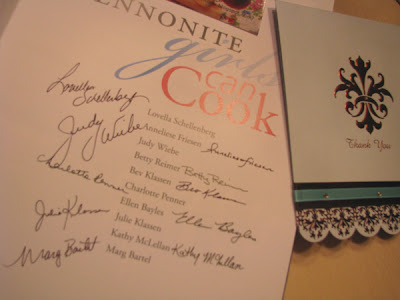 ENNONITE
girls
can
Cook
Lovella Schellenberg
Lovella Schellenberg
Anneliese Friesen Anneliese Friesen
Judy Wiebe
Judy Wiebe
Betty Reimer Betty Reimer
Bev Klassen Bev Klassen
Charlotte Penner
Charlotte Penner
Ellen Bayles Ellen Bayles
Julie Klassen
Julie Klassen
Kathy McLellan Kathy McLellan
Marg Bartel
Marg Bartel
Thank You